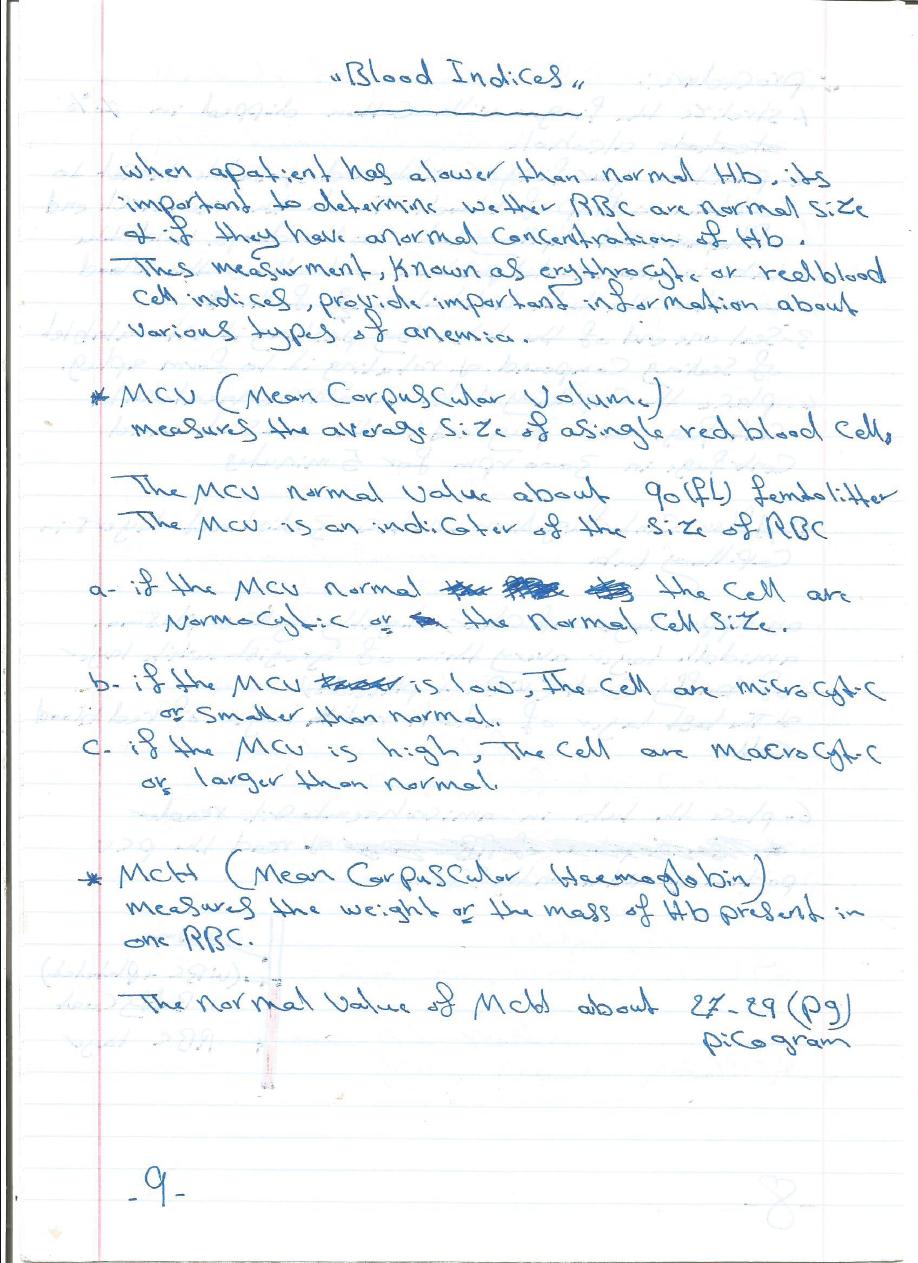 "Blood Indices"
when apatient has alower than normal Hb, its
important to determine wether RBC are normal size
& if they have anormal Concentration of Hb.
Thes measurment, Known as erythrocyte or red blood
Cell indices, provide important information about
various types of anemia.
* MCV (Mean Corpuscular Volume)
measures the average size of asingle red blood cell,
The MCV normal Value about 90 (fL) femtolitter
The MCV is an indicater of the size of RBC
a- if the MCV normal the Cell are
Normocytic or the normal Cell size.
b- if the MCV is low, The Cell are microcytic
or smaller than normal.
c- if the MCV is high, The Cell are macrocytic
or larger than normal.
* MCH (Mean Corpuscular Haemoglobin)
measures the weight or the mass of Hb present in
one RBC.
The normal Value of MCH about 27-29 (pg)
picogram
-9-